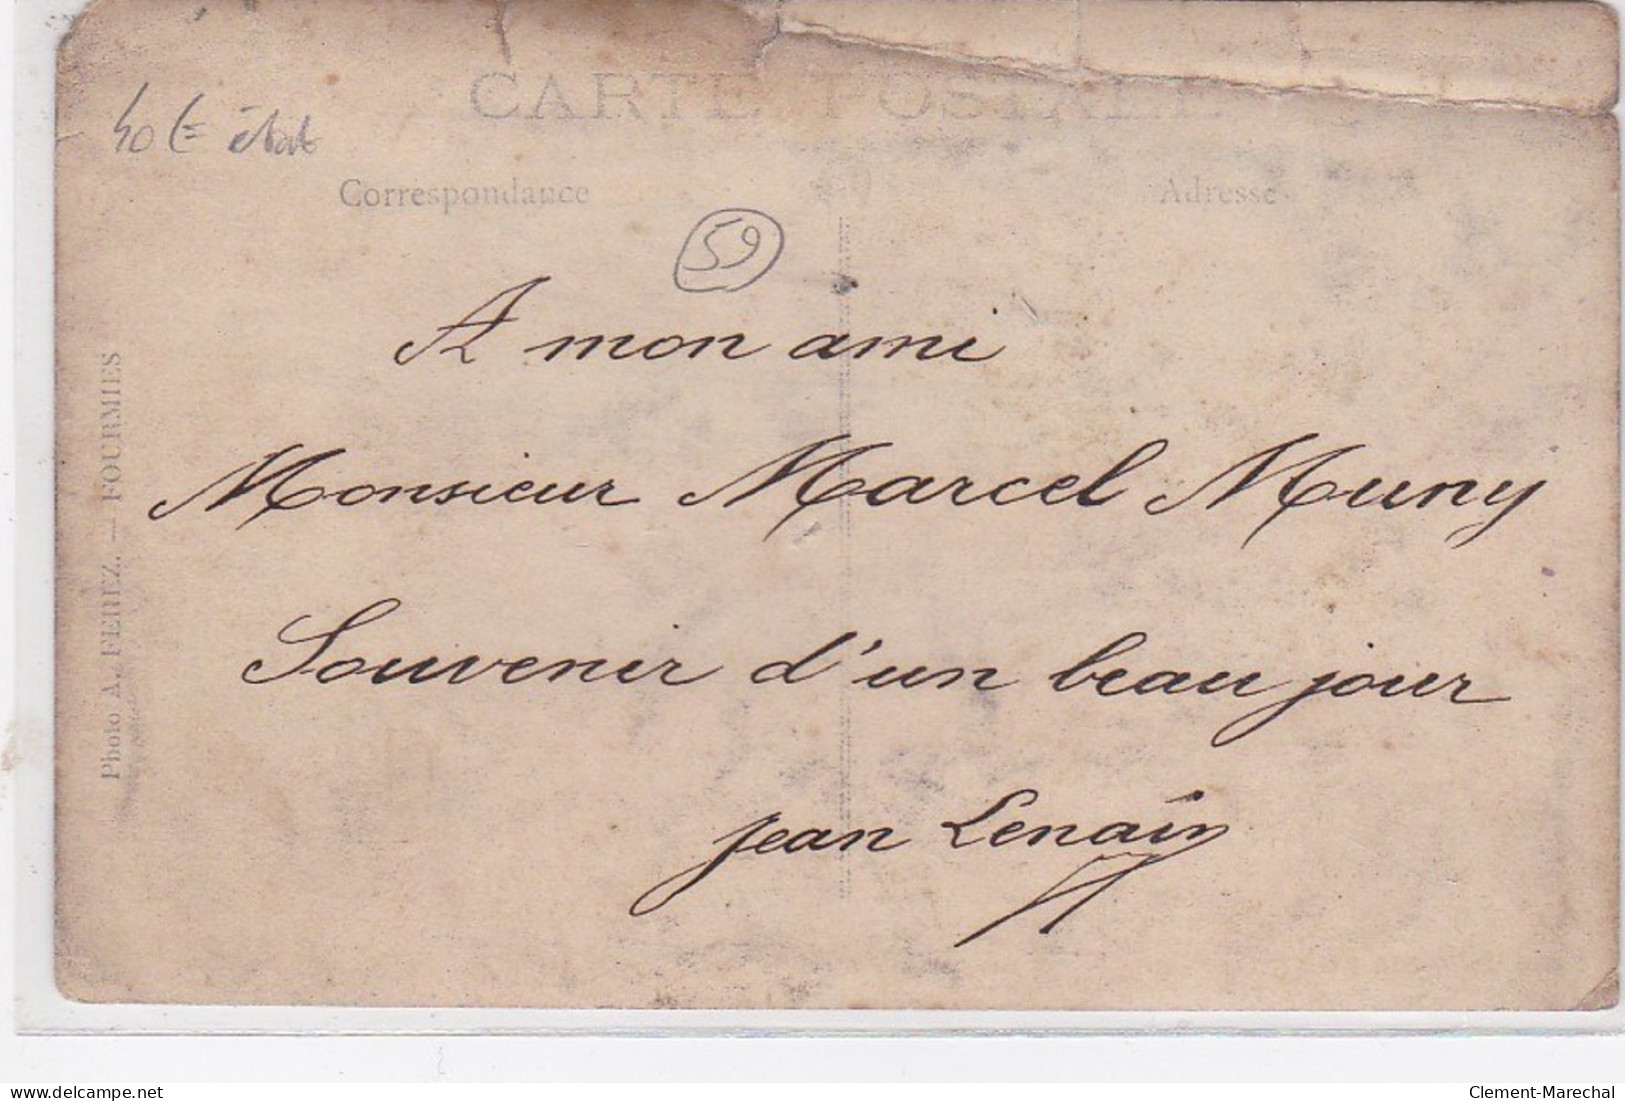 CARTE POSTALE
40 € état
Correspondance
Adresse
59
A mon ami
Monsieur Marcel Muny
Souvenir d'un beau jour
Jean Lenain
Photo A. FEREZ. — FOURMIES
www.delcampe.net
Clement-Marechal